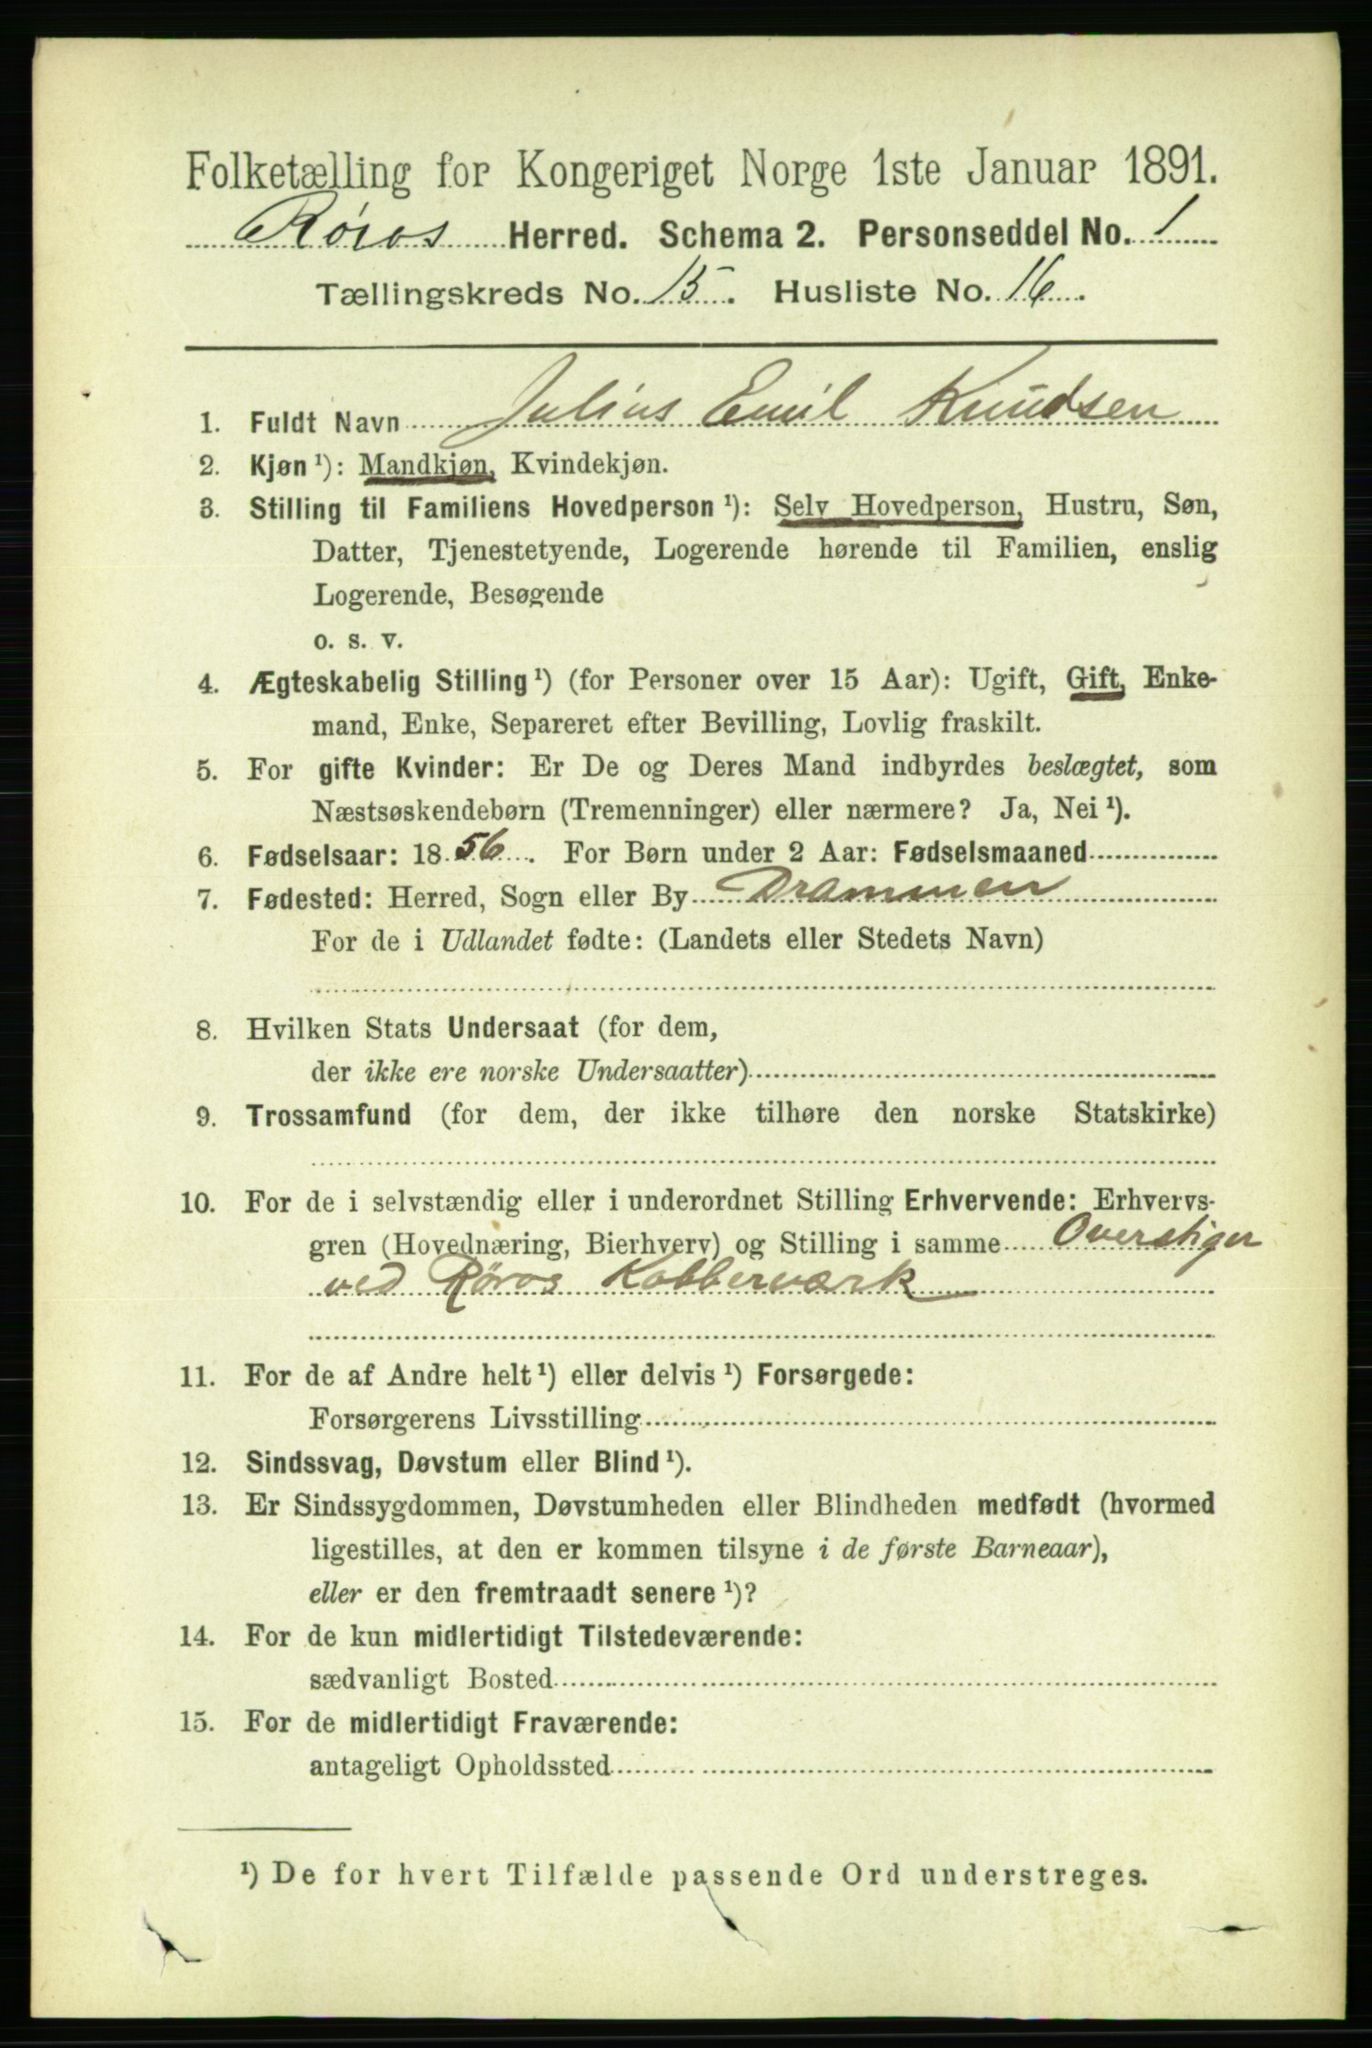 Folketælling for Kongeriget Norge 1ste Januar 1891.
Røros Herred. Schema 2. Personseddel No. 1
Tællingskreds No. 15. Husliste No. 16.
1. Fuldt Navn Julius Emil Knudsen
2. Kjøn ¹): Mandkjøn, Kvindekjøn.
3. Stilling til Familiens Hovedperson ¹): Selv Hovedperson, Hustru, Søn,
Datter, Tjenestetyende, Logerende hørende til Familien, enslig
Logerende, Besøgende
o. s. v.
4. Ægteskabelig Stilling ¹) (for Personer over 15 Aar): Ugift, Gift, Enke-
mand, Enke, Separeret efter Bevilling, Lovlig fraskilt.
5. For gifte Kvinder: Er De og Deres Mand indbyrdes beslægtet, som
Næstsøskendebørn (Tremenninger) eller nærmere? Ja, Nei ¹).
6. Fødselsaar: 1856. For Børn under 2 Aar: Fødselsmaaned
7. Fødested: Herred, Sogn eller By Drammen
For de i Udlandet fødte: (Landets eller Stedets Navn)
8. Hvilken Stats Undersaat (for dem,
der ikke ere norske Undersaatter)
9. Trossamfund (for dem, der ikke tilhøre den norske Statskirke)
10. For de i selvstændig eller i underordnet Stilling Erhvervende: Erhvervs-
gren (Hovednæring, Bierhverv) og Stilling i samme Overstiger
ved Røros Kobberværk
11. For de af Andre helt ¹) eller delvis ¹) Forsørgede:
Forsørgerens Livsstilling
12. Sindssvag, Døvstum eller Blind ¹).
13. Er Sindssygdommen, Døvstumheden eller Blindheden medfødt (hvormed
ligestilles, at den er kommen tilsyne i de første Barneaar),
eller er den fremtraadt senere ¹)?
14. For de kun midlertidigt Tilstedeværende:
sædvanligt Bosted
15. For de midlertidigt Fraværende:
antageligt Opholdssted
¹) De for hvert Tilfælde passende Ord understreges.